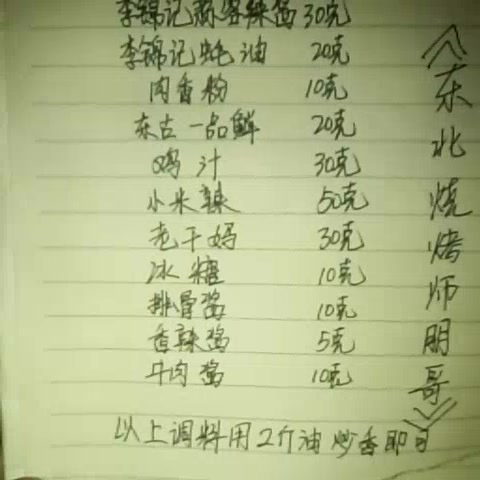 李锦记蒜蓉辣酱 30克
李锦记蚝油 20克
肉香粉 10克
东古一品鲜 20克
鸡汁 30克
小米辣 50克
老干妈 30克
冰糖 10克
排骨酱 10克
香辣酱 5克
牛肉酱 10克
以上调料用2斤油炒香即可
《东北烧烤师朋哥》